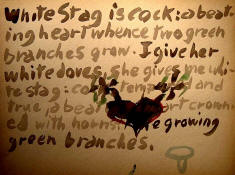 White Stag is cock: a beat-
ing heart whence two green
branches grow. I give her
white doves. She gives me whi-
te stag: cock. Temp and
true a beat crown-
ed with horns. growing
green branches.